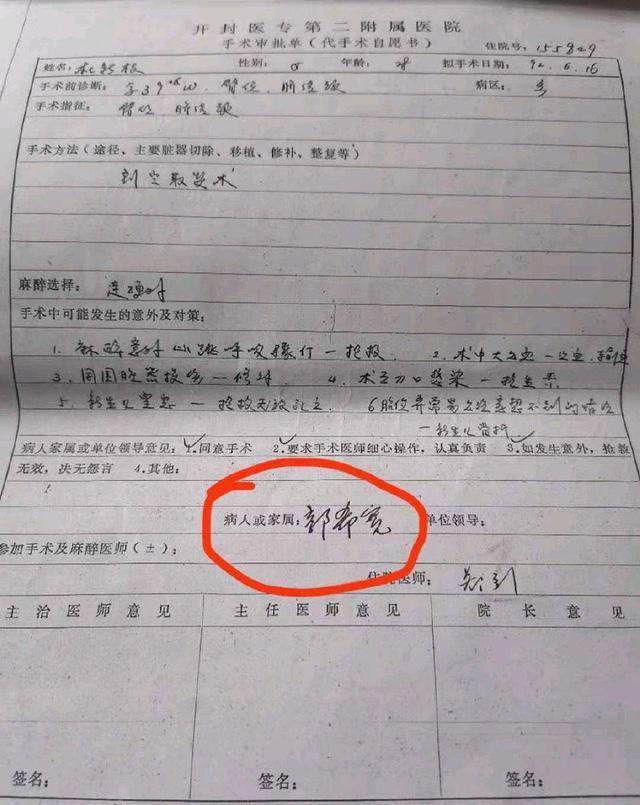 开封医专第二附属医院
手术审批单（代手术自愿书） 住院号：155829
姓名：杜新枝 性别：♀ 年龄： 拟手术日期：92.6.16
手术前诊断：孕39⁺²⁸W、臀位、脐绕颈 病区：
手术指征：臀位、脐绕颈
手术方法（途径、主要脏器切除、移植、修补、整复等）
剖宫取婴术
麻醉选择：连硬外
手术中可能发生的意外及对策：
1. 麻醉意外 心跳呼吸骤停一抢救. 2. 术中大出血一
3. 周围脏器损伤一修补 4. 术后刀口感染一抗生素
5. 新生儿窒息一抢救无效死亡 6胎位异常
一新生儿骨折
病人家属或单位领导意见：1.同意手术 2.要求手术医师细心操作，认真负责 3.如发生意外，抢救
无效，决无怨言 4.其他：
病人或家属：郭希宽 单位领导：
参加手术及麻醉医师（±）：
住院医师：
主治医师意见 主任医师意见 院长意见
签名： 签名： 签名：